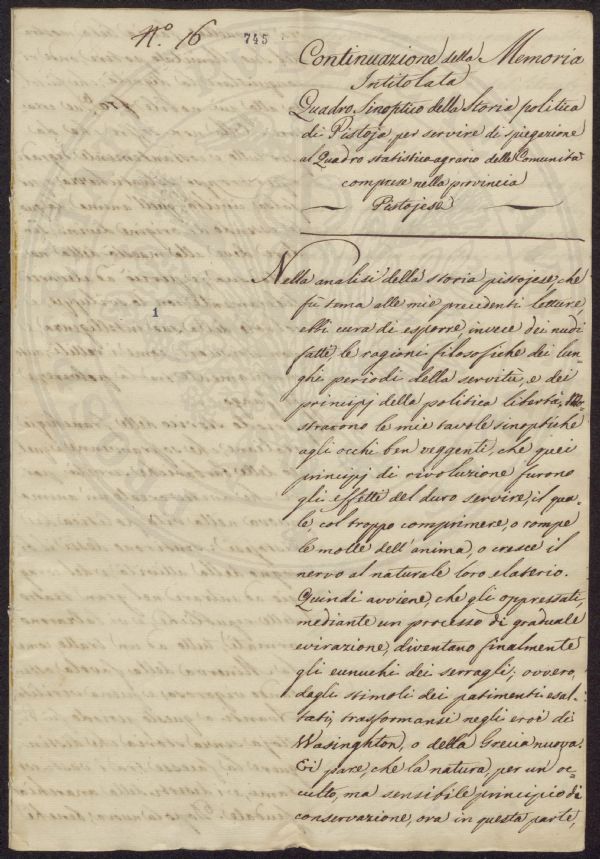 N.º 16
745
Continuazione della Memoria
Intitolata
Quadro Sinoptico della Storia politica
di Pistoja per servire di spiegazione
al Quadro statistico-agrario delle Comunità
comprese nella provincia
Pistojese
Nella analisi della storia pistojese che
fù tema alle mie precedenti letture,
ebbi cura di esporre, invece dei nudi
fatti, le ragioni filosofiche dei lun-
ghi periodi della servitù, e dei
principj della politica libertà. Mo-
strarono le mie tavole sinoptiche
agli occhi ben veggenti, che quei
principj di rivoluzione furono
gli effetti del duro servire, il qua-
le, col troppo comprimere, o rompe
le molle dell'anima, o cresce il
nervo al naturale loro elaterio.
Quindi avviene, che gli oppressati,
mediante un processo di graduale
evirazione, diventano finalmente
gli eunuchi dei serragli; ovvero,
dagli stimoli dei patimenti esal-
tati, trasformansi negli eroi di
Wasinghton, o della Grecia nuova.
Ei pare, che la natura, per un oc-
culto, ma sensibile principio di
conservazione, ora in questa parte,
1